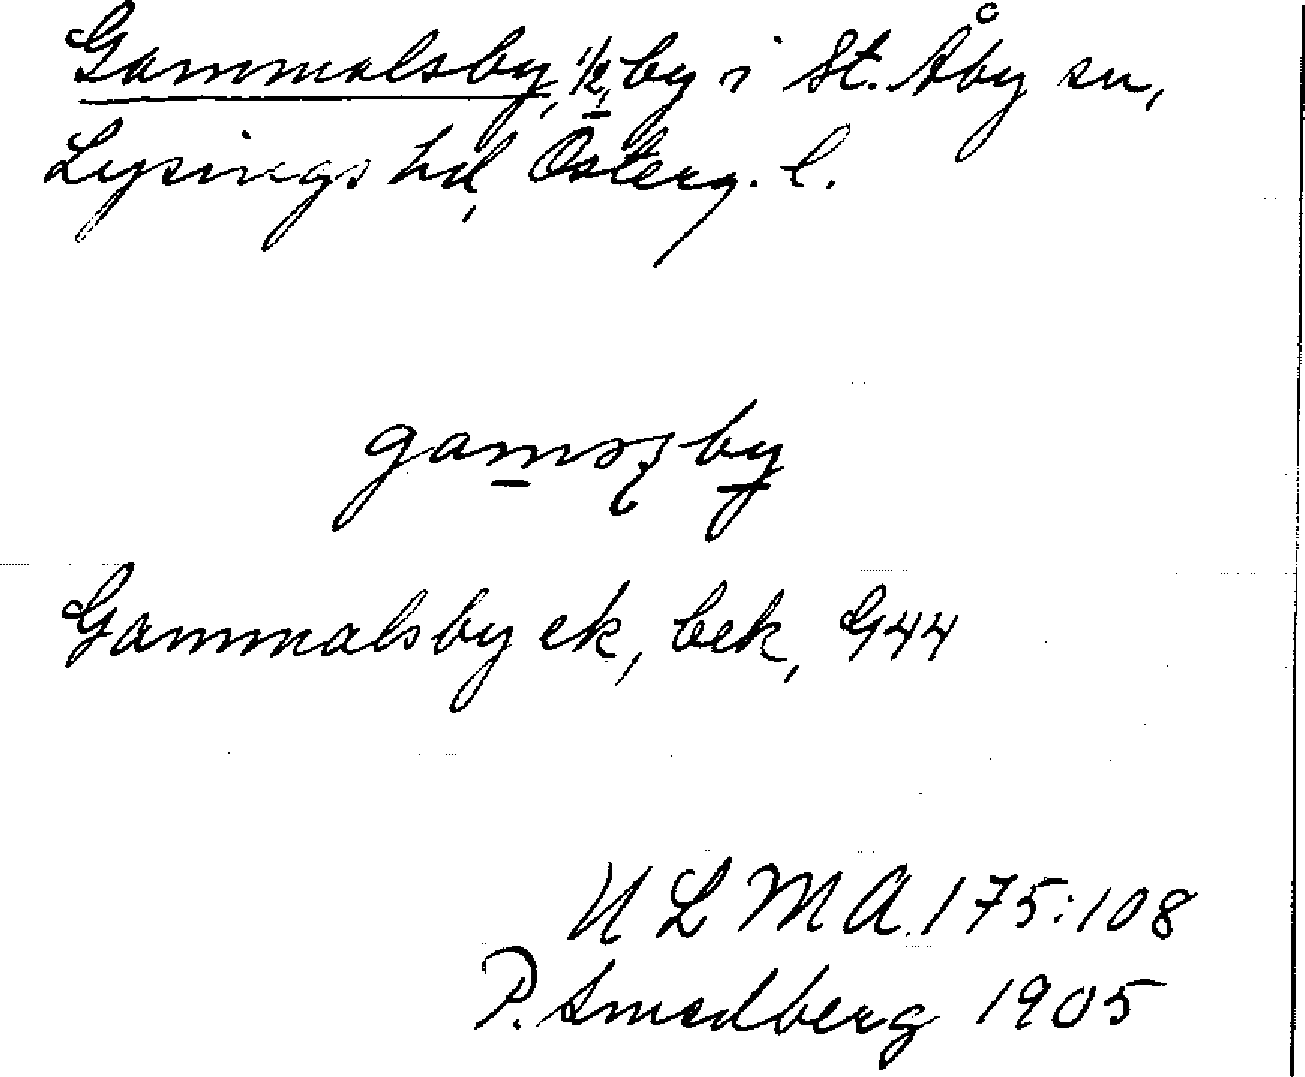 Gammalsby, 1/2, by i St. Åby sn,
Lysings hd, Österg. l.
Gammalsby ek, bek, G44
ULMA 175:108
P. Smedberg 1905